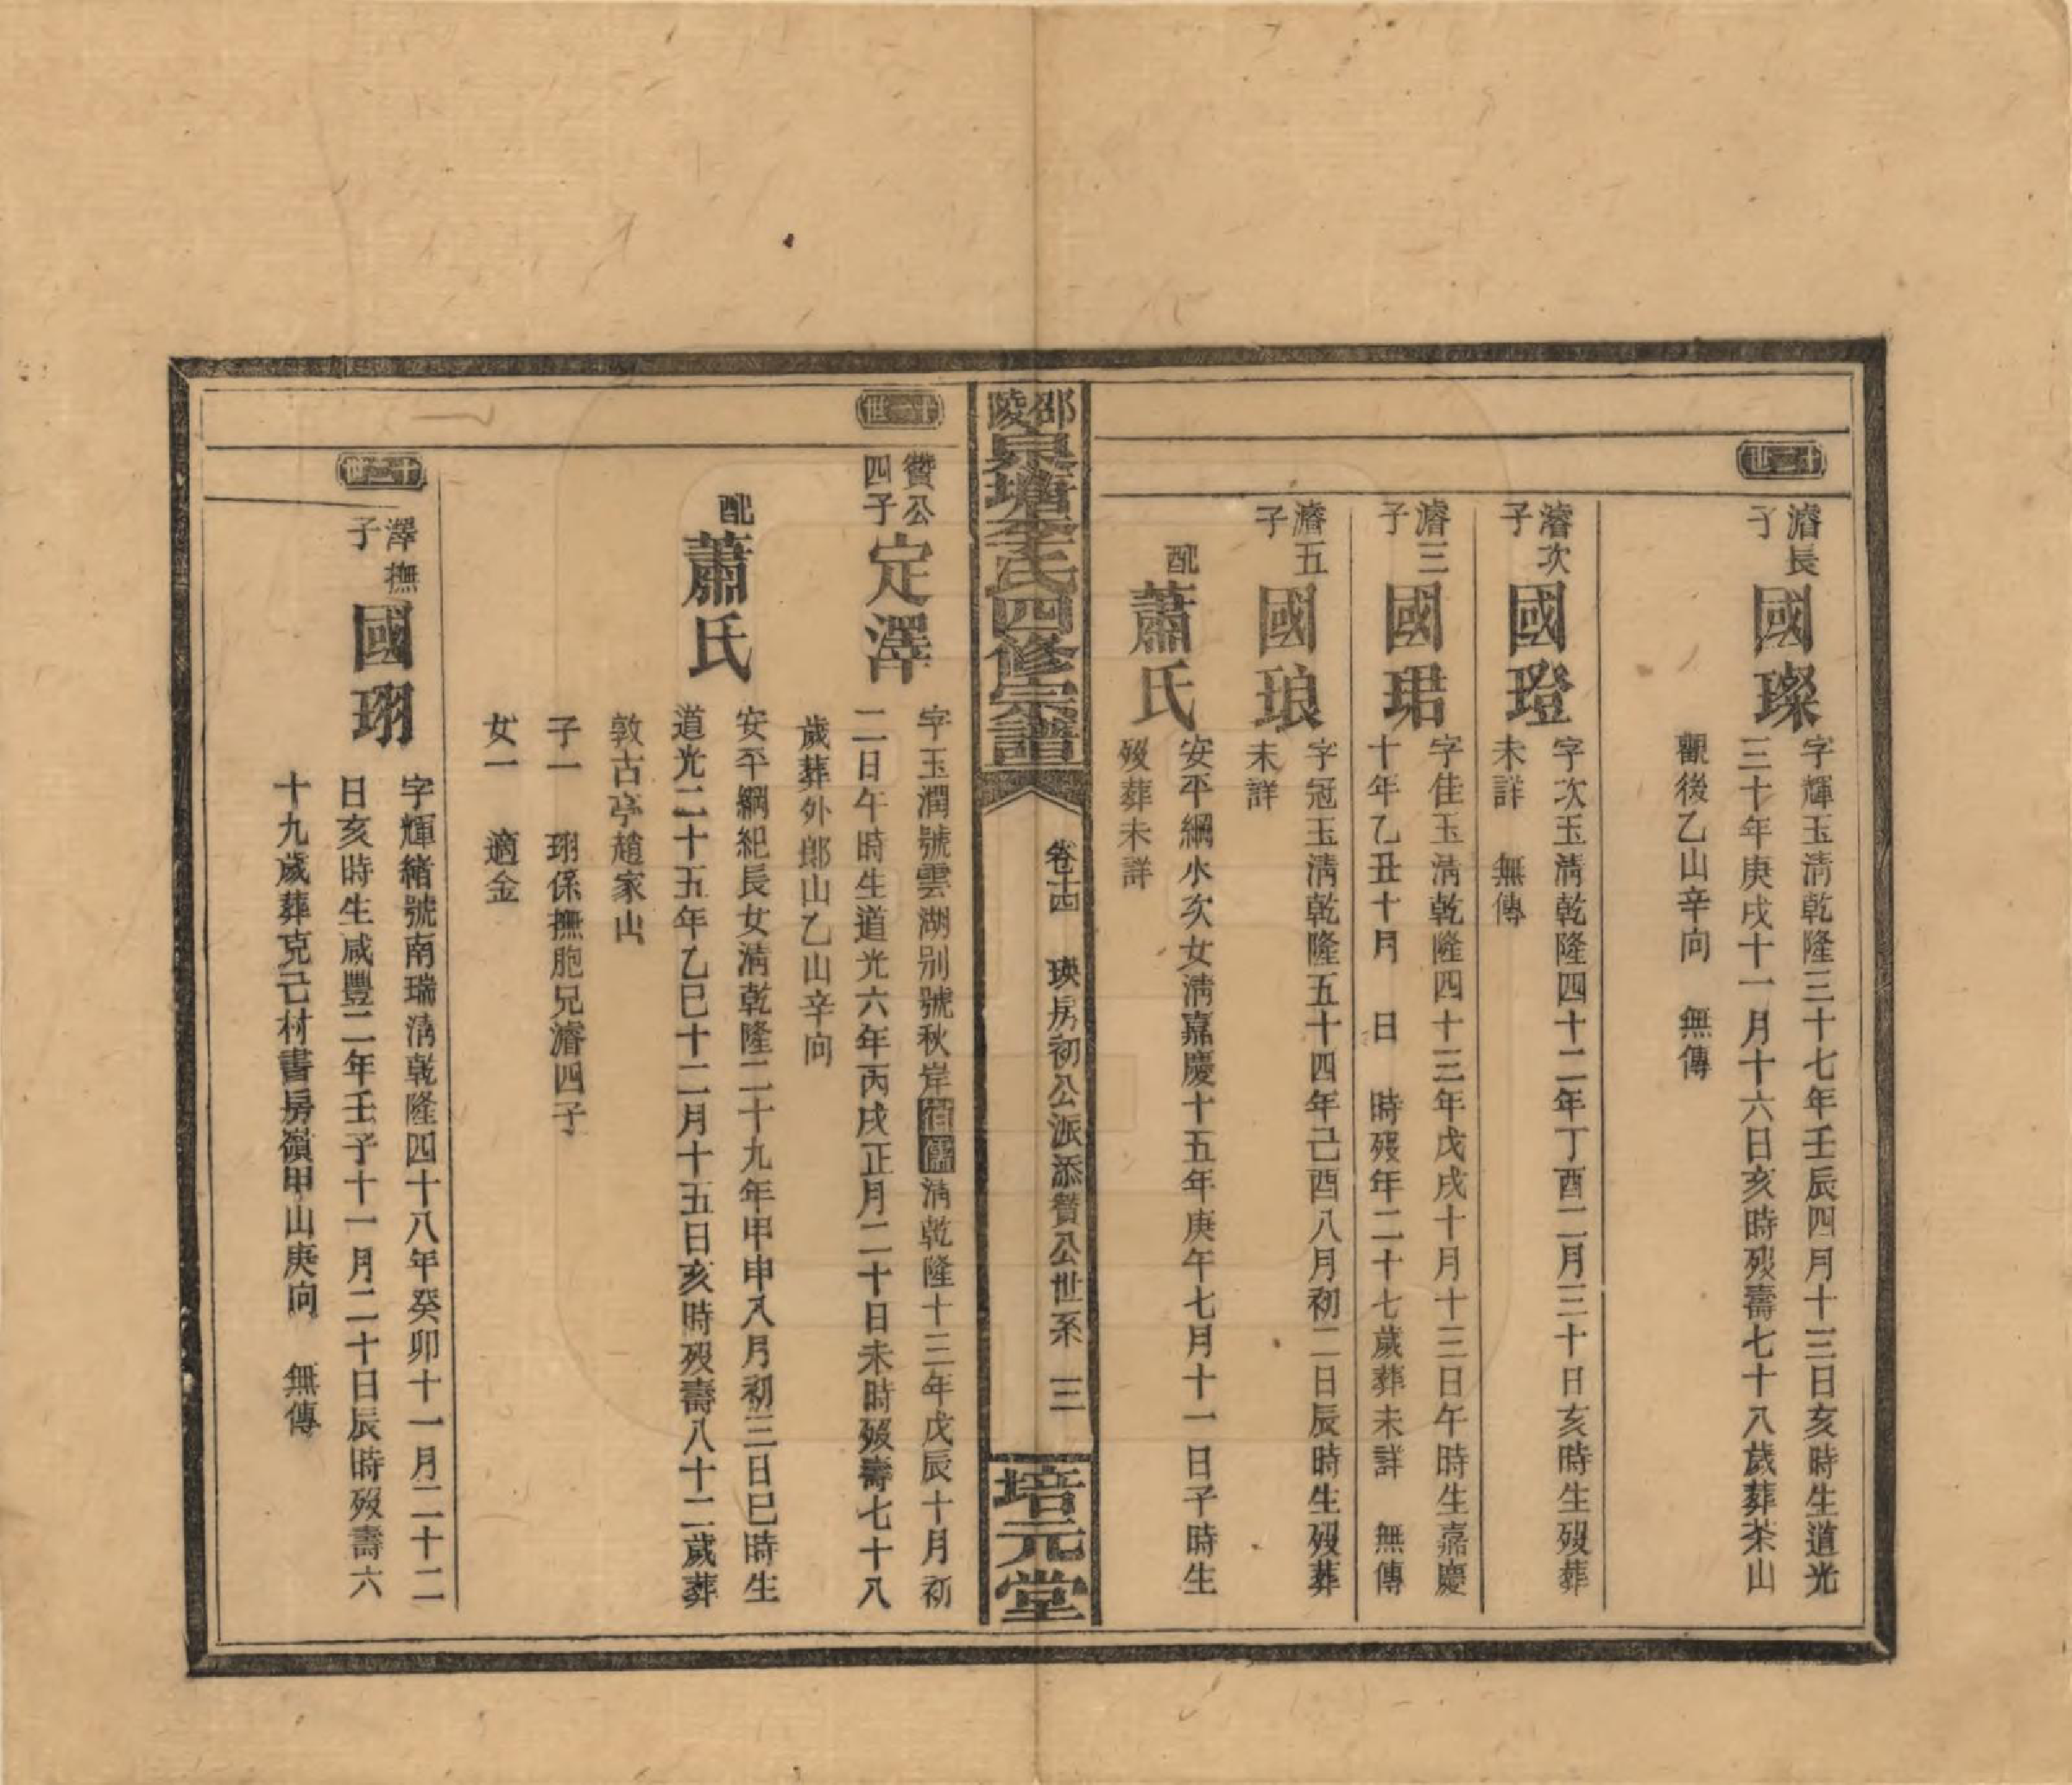 十二世
濬長子
國璨
字輝玉清乾隆三十七年壬辰四月十三日亥時生道光
三十年庚戌十一月十六日亥時歿壽七十八歲葬茶山
觀後乙山辛向　無傳
濬次子
國璒
字次玉清乾隆四十二年丁酉二月三十日亥時生歿葬
未詳　無傳
濬三子
國珺
字佳玉清乾隆四十三年戊戌十月十三日午時生嘉慶
十年乙丑十月　日　時歿年二十七歲葬未詳　無傳
濬五子
國琅
字冠玉清乾隆五十四年己酉八月初二日辰時生歿葬
未詳
配
蕭氏
安平綱水次女清嘉慶十五年庚午七月十一日子時生
歿葬未詳
邵陵泉塘李氏四修宗譜
卷十四　瑛房初公派添贊公世系　三
培元堂
十一世
贊公四子
定澤
字玉潤號雲湖别號秋岸宿儒清乾隆十三年戊辰十月初
二日午時生道光六年丙戌正月二十日未時歿壽七十八
歲葬外郎山乙山辛向
配
蕭氏
安平綱紀長女清乾隆二十九年甲申八月初三日巳時生
道光二十五年乙巳十二月十五日亥時歿壽八十二歲葬
敦古亭趙家山
子一　珝係撫胞兄濬四子
女一　適金
十二世
澤撫子
國珝
字輝緒號南瑞清乾隆四十八年癸卯十一月二十二
日亥時生咸豐二年壬子十一月二十日辰時歿壽六
十九歲葬克己村書房嶺甲山庚向　無傳